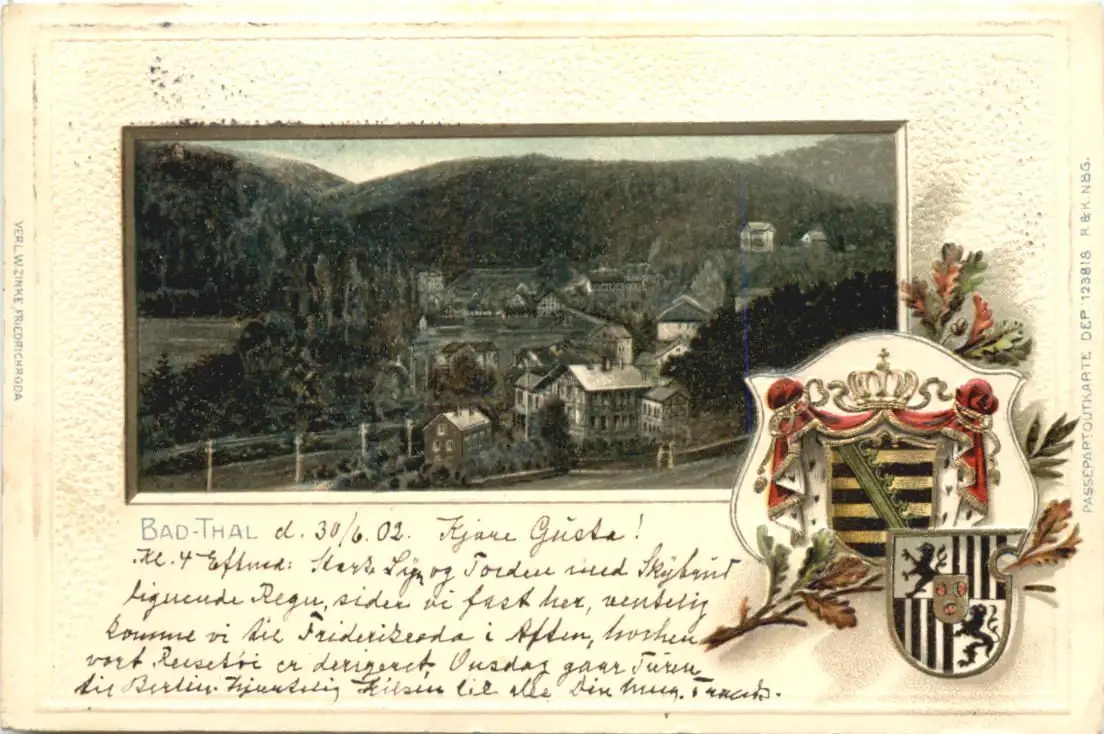 BAD-THAL d. 30/6. 02. Kjære Gusta!
Kl. 4 Eftmd: Stærk Lyn og Torden med Skybrud
lignende Regn, sider vi fast her, ventelig
komme vi til Friderikroda i Aften, hvorhen
vort Reisetøi er derigeret, Onsdag gaar Turen
til Berlin. Hjertelig Hilsen til alle Din
VERL. W. ZINKE, FRIEDRICHRODA
PASSEPARTOUTKARTE DEP 123818 R.&K.NBG.